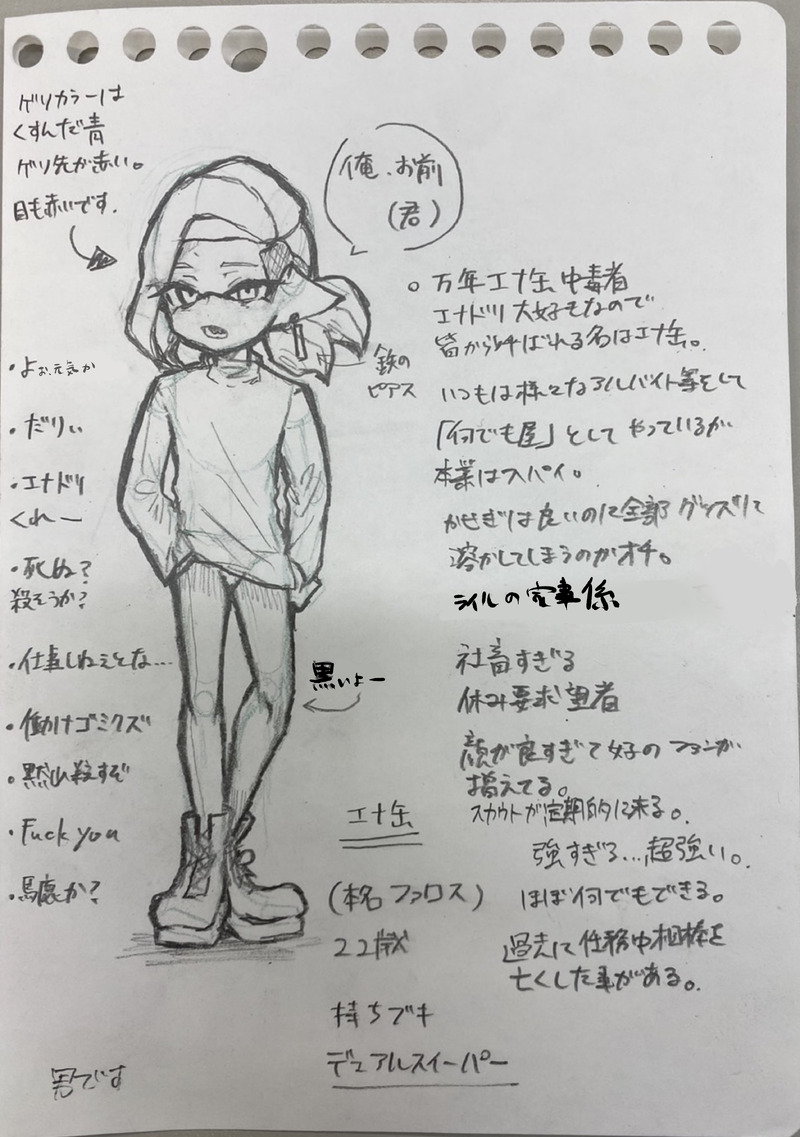 ゲソカラーは
くすんだ青
ゲソ先が赤い。
目も赤いです。
俺、お前
(君)
鉄の
ピアス
・よぉ元気か
・だりぃ
・エナドリ
くれー
・死ぬ?
殺そうか?
・仕事しねぇとな…
・働けゴミクズ
・黙れ殺すぞ
・Fuck you
・馬鹿か?
黒いよー
。万年エナ缶中毒者
エナドリ大好きなので
皆から呼ばれる名はエナ缶。
いつもは様々なアルバイト等をして
「何でも屋」としてやっているが
本業はスパイ。
かせぎは良いのに全部グッズにて
溶かしてしまうのがオチ。
ライルの家事係
社畜すぎる
休み要求望者
顔が良すぎて女子のファンが
増えてる。
スカウトが定期的に来る。
強すぎる…超強い。
ほぼ何でもできる。
過去に任務中相棒を
亡くした事がある。
エナ缶
(本名ファロス)
22歳
持ちブキ
デュアルスイーパー
男です